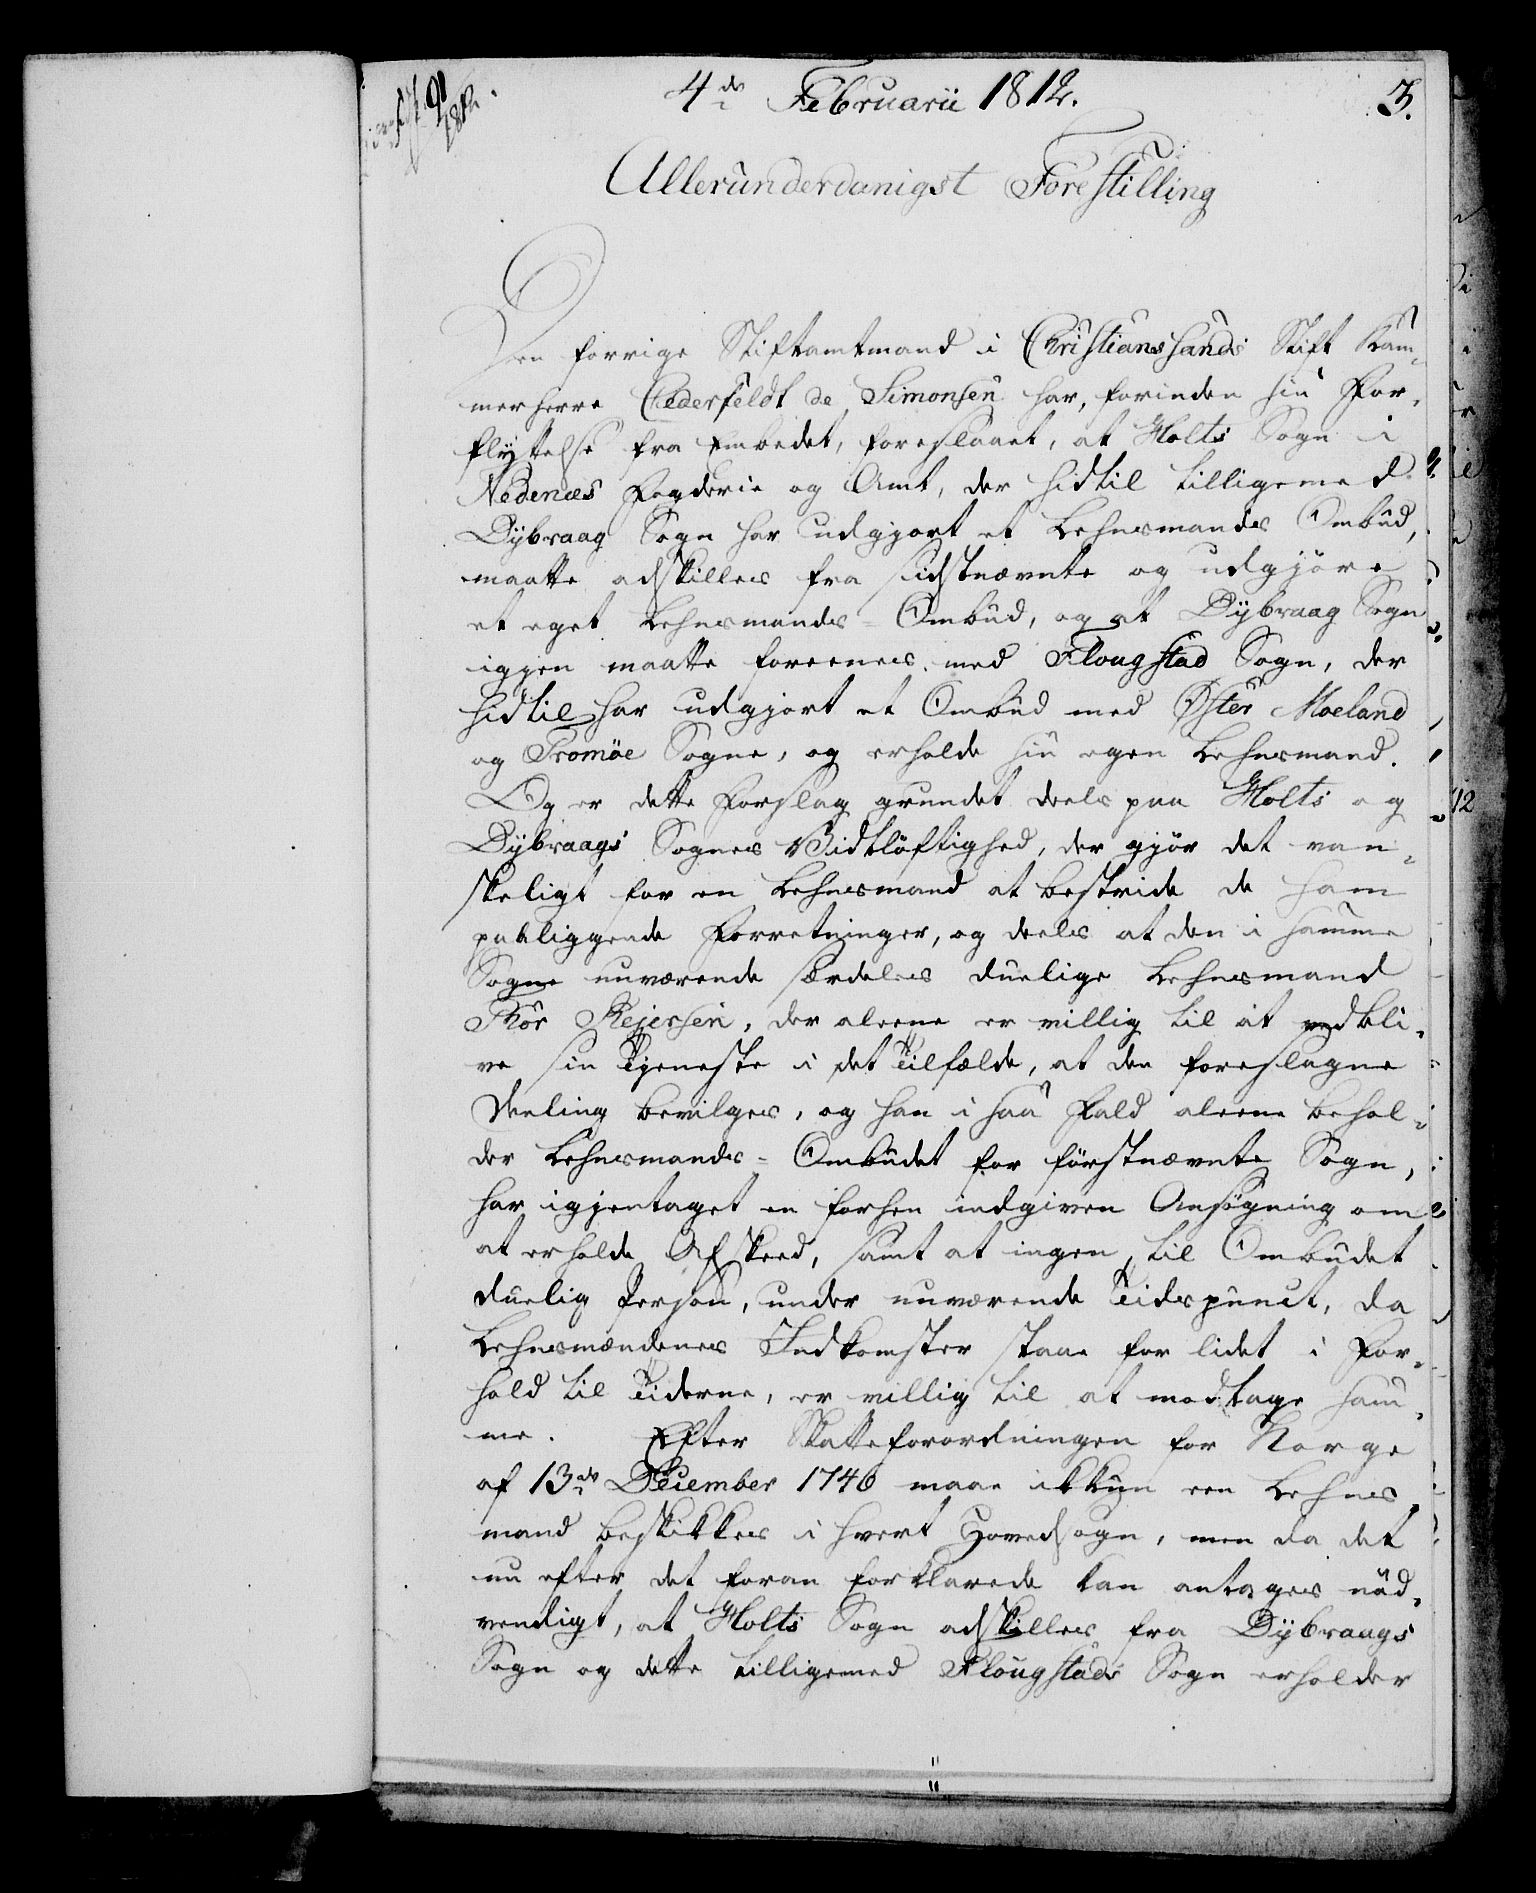 4de Februarii 1812.
3.
Allerunderdanigst Forestilling
Den forrige Stiftamtmand i Christianssands Stift Kam-
merherre Cederfeldt de Simonsen har, forinden sin For-
flyttelse fra Embedet, foreslaaet, at Holts Sogn i
Nedenæs Fogderie og Amt, der hidtil tilligemed
Dybraag Sogn har udgjort et Lehnsmands Ombud,
maatte adskilles fra sidstnævnte og udgjøre
et eget Lehnsmands-Ombud, og at Dybraag Sogn
igjen maatte foreenes med Flougstad Sogn, der
hidtil har udgjort et Ombud med Øster Moeland
og Tromöe Sogne, og erholde sin egen Lehnsmand.
Og er dette Forslag grundet deels paa Holts og
Dybraags Sognes Vidtløftighed, der gjør det van-
skeligt for en Lehnsmand at bestride de ham
paaliggende Forretninger, og deels at den i samme
Sogne nuværende særdeles duelige Lehnsmand
Thor Rejersen, der aleene er villig til at vedbli-
ve sin Tjeneste i det Tilfælde, at den foreslagne
Deeling bevilges, og han i saa Fald aleene behol-
der Lehnsmands-Ombudet for förstnævnte Sogn,
har igjentaget en forhen indgiven Ansøgning om
at erholde Afskeed, samt at ingen, til Ombudet
duelig Person, under nuværende Tidspunct, da
Lehnsmændenes Indkomster staae for lidet i For-
hold til Tiderne, er villig til at modtage sam-
me. Efter Skatteforordningen for Norge
af 13de December 1746 maae ikkun een Lehns-
mand beskikkes i hvert Hovedsogn, men da det
nu efter det foran forklarede kan antages nöd-
vendigt, at Holts Sogn adskilles fra Dybraags
Sogn og dette tilligemed Flougstads Sogn erholder